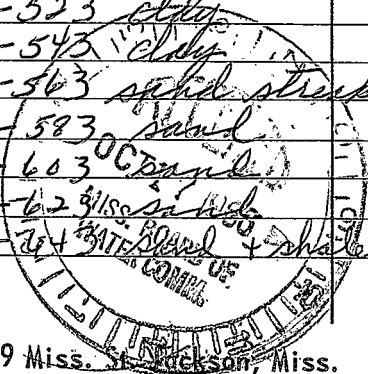 -523 clay
-543 clay
-563 sand streak
-583 sand
-603 sand
-623 sand
-643 sand + shale
OCT
MISS. BOARD OF
WATER COMM.
9 Miss. St. Jackson, Miss.